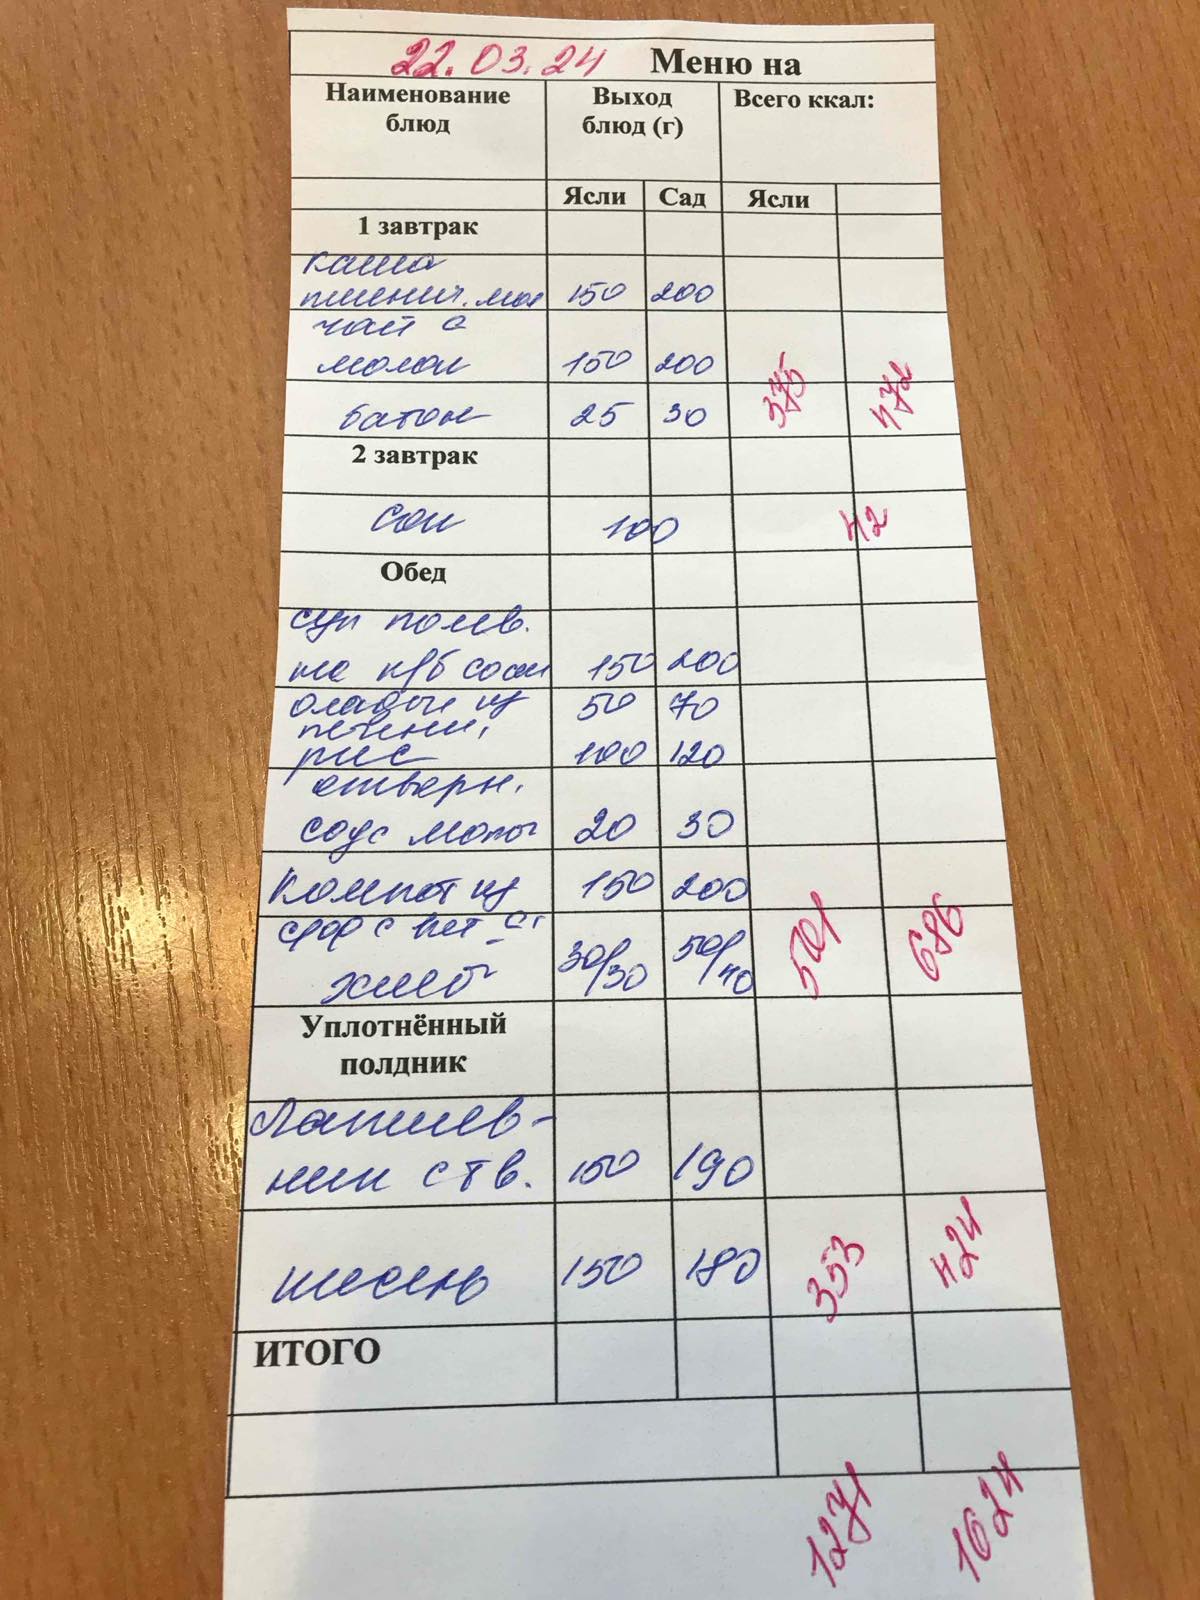 22.03.24 Меню на
Наименование блюд Выход блюд (г) Всего ккал:
Ясли Сад Ясли
1 завтрак
каша
пшенич. мол 150 200
чай с
молок 150 200
батон 25 30 375 472
2 завтрак
сок 100 42
Обед
суп полев.
на к/б сосн 150 200
оладьи из 50 70
печени,
рис 100 120
отварн.
соус молоч 20 30
Компот из 150 200
с/фр с вит "С"
хлеб 30/30 50/40 501 686
Уплотнённый
полдник
Лапшев-
ник с тв. 150 190
кисель 150 180 353 424
ИТОГО
1271 1624